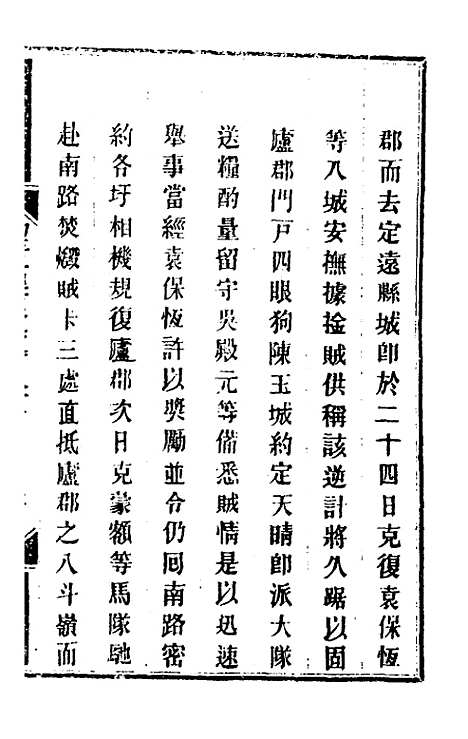 郡而去定遠縣城卽於二十四日克復袁保恆
等入城安撫據捡賊供稱該逆計將久踞以固
廬郡門戸四眼狗陳玉城約定天晴卽派大隊
送糧酌量留守吳殿元等備悉賊情是以迅速
舉事當經袁保恆許以奬勵並令仍囘南路密
約各圩相機規復廬郡次日克蒙額等馬隊馳
赴南路焚燬賊卡三處直抵廬郡之八斗嶺而